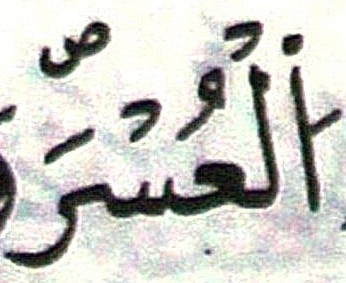 اُ۬لْعُسْرَۖ